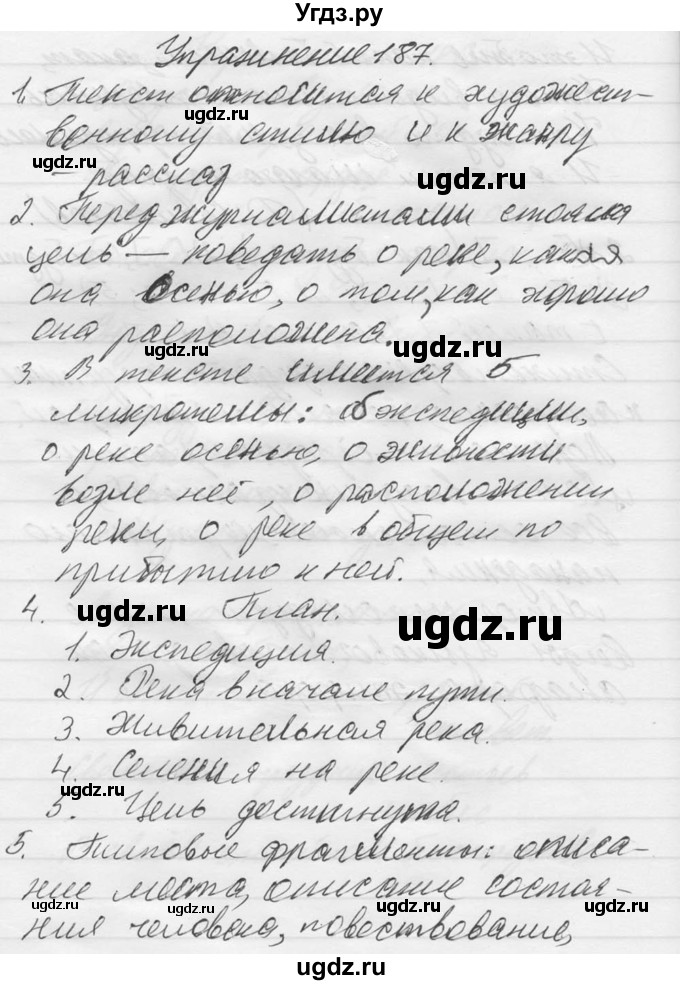 Угдз.ру
Упражнение 187.
1. Текст относится к художест-
венному стилю и к жанру
– рассказ
2. Перед журналистами стояла
цель — поведать о реке, какая
она осенью, о том, как хорошо
она расположена.
3. В тексте имеется 5
микротемы: об экспедиции,
о реке осенью, о живности
возле неё, о расположении
реки, о реке в общем по
прибытию к ней.
4. План.
1. Экспедиция.
2. Река вначале пути.
3. Живительная река.
4. Селения на реке.
5. Цель достигнута.
5. Типовые фрагменты: описа-
ние места, описание состоя-
ния человека, повествование,
ugdz.ru
ugdz.ru
ugdz.ru
ugdz.ru
ugdz.ru
ugdz.ru
ugdz.ru
ugdz.ru
ugdz.ru
ugdz.ru
ugdz.ru
ugdz.ru